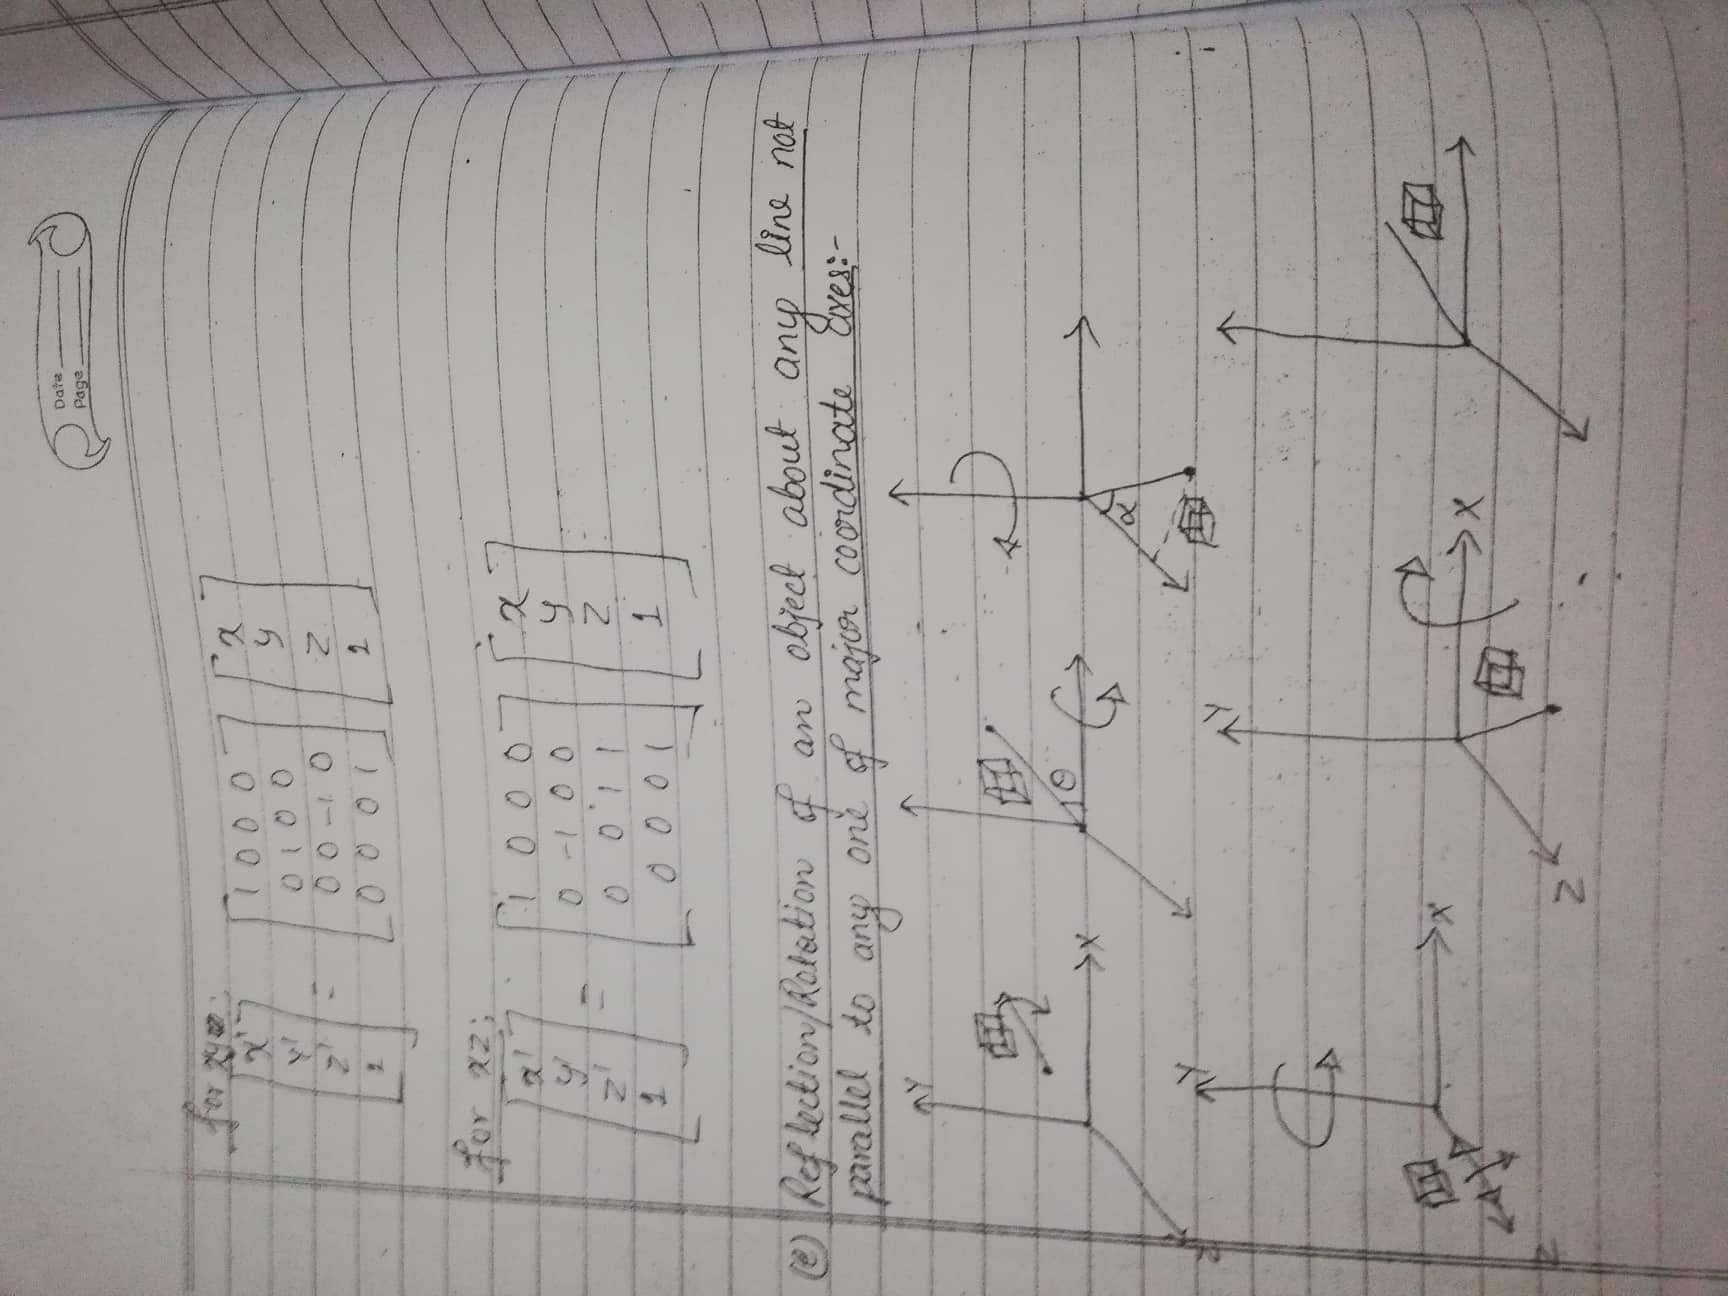 Date
Page
for xy:
[x' y' z' 1] = [1 0 0 0
0 1 0 0
0 0 -1 0
0 0 0 1] [x y z 1]
for xz;
[x' y' z' 1] = [1 0 0 0
0 -1 0 0
0 0 1 1
0 0 0 1] [x y z 1]
(e) Reflection/Rotation of an object about any line not
parallel to any one of major coordinate axes:-
Y
X
Z
θ
α
Y
X
Z
Y
X
Z